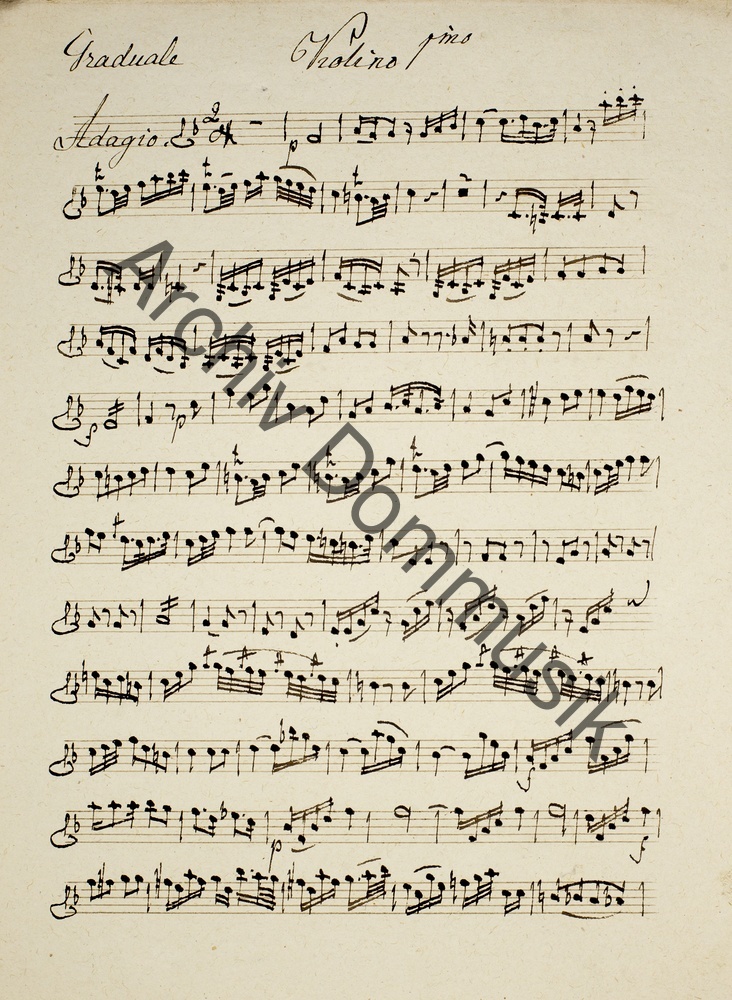 Graduale Violino 1mo
Adagio. 2
p
f p
f
p f
Archiv Dommusik